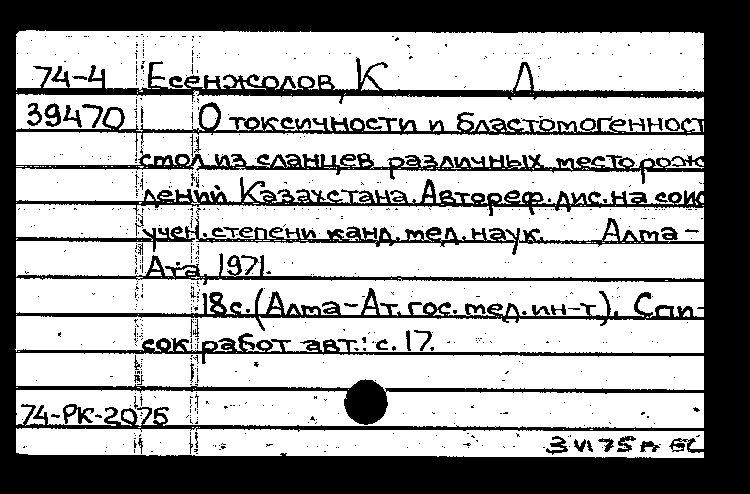 74-4 Есенжолов, К Л
39470 О токсичности и бластомогенност
смол из сланцев различных месторож
дений Казахстана. Автореф. дис. на соис
учен. степени канд. мед. наук. Алма-
Ата, 1971.
18с. (Алма-Ат. гос. мед. ин-т). Спи-
сок работ авт.: с. 17.
74-РК-2075
3 VI 75